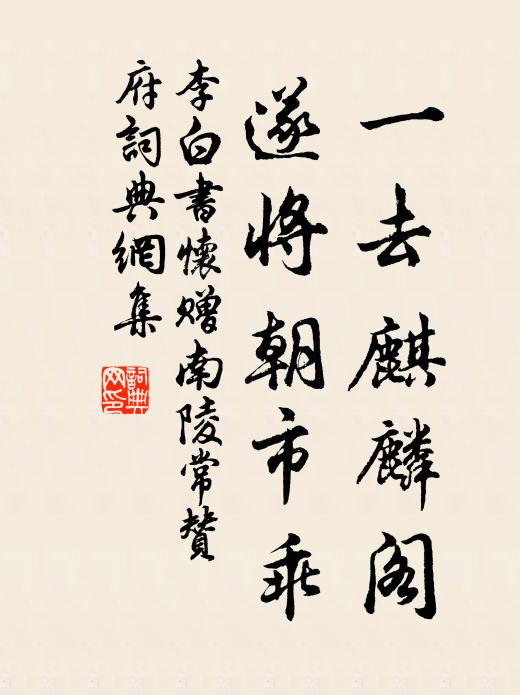 一去麒麟阁
遂將朝市乖
李白書懷贈南陵常贊
府詞典網集
詞典
网印